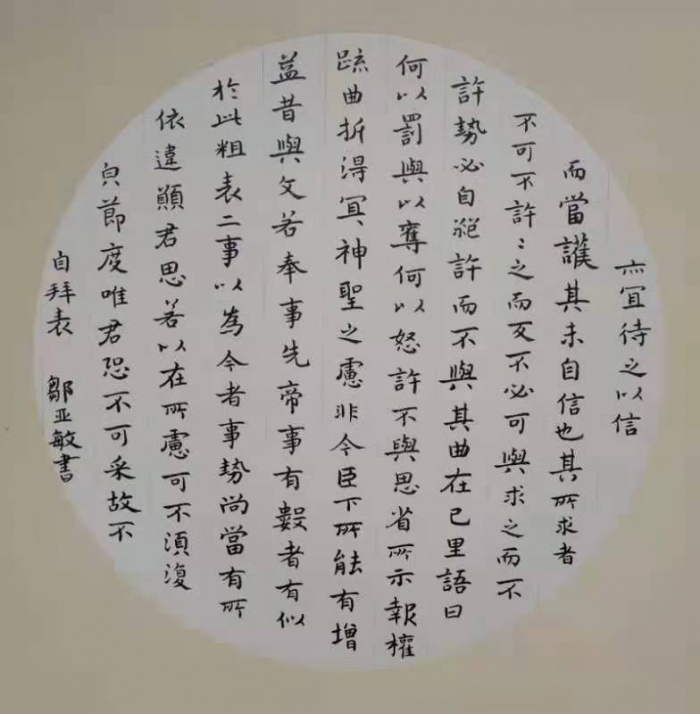 亦宜待之以信
而當護其未自信也其所求者
不可不許〻之而反不必可與求之而不
許勢必自絕許而不與其曲在己里語曰
何以罰與以奪何以怒許不與思省所示報權
疏曲折得冝神聖之慮非今臣下所能有增
益昔與文若奉事先帝事有數者有似
於此粗表二事以為今者事勢尚當有所
依違願君思若以在所慮可不須復
皃節度唯君恐不可采故不
自拜表 鄒亚敏書